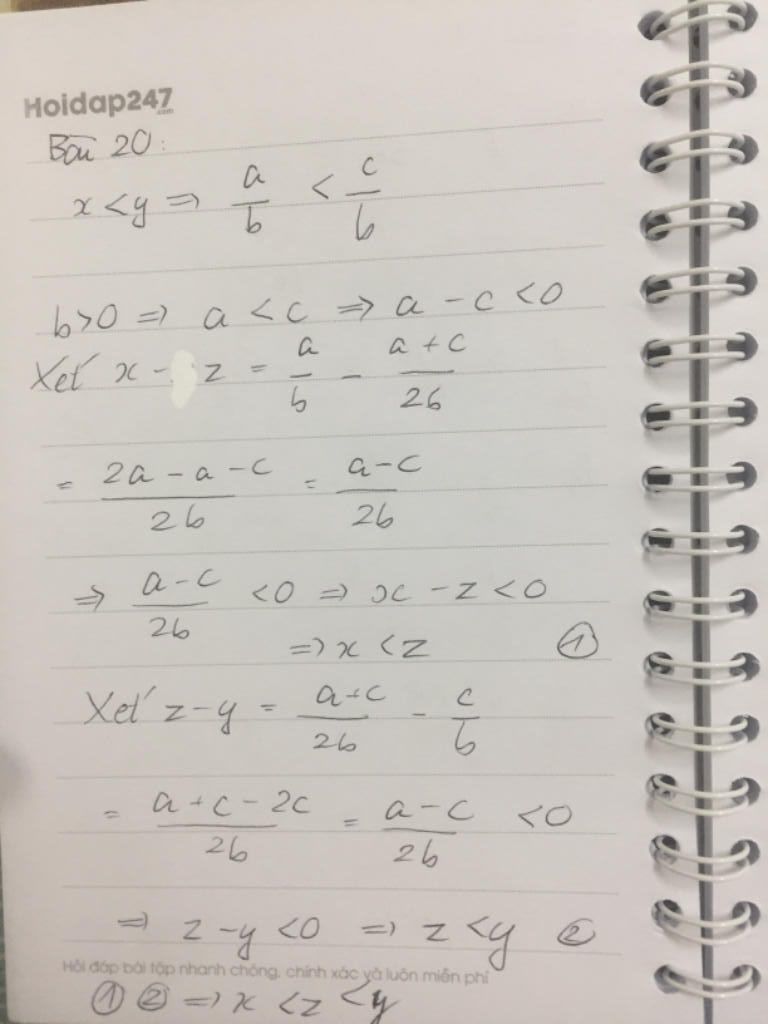 Hoidap247
.com
Bài 20:
x < y => a/b < c/b
b>0 => a < c => a - c < 0
Xét x - z = a/b - (a + c)/2b
= (2a - a - c)/2b = (a-c)/2b
=> (a-c)/2b < 0 => x - z < 0
=> x < z ①
Xét z-y = (a+c)/2b - c/b
= (a + c - 2c)/2b = (a-c)/2b < 0
=> z - y < 0 => z < y ②
Hỏi đáp bài tập nhanh chóng, chính xác và luôn miễn phí
① ② => x < z < y